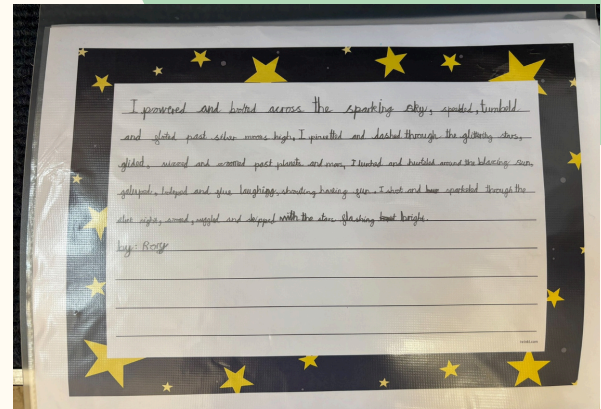 I powered and bolted across the sparking sky, spedded, tumbold
and glided past silver moons high, I pirouetted and dashed through the glittering stars,
glided, and zoomed past planets and mars, I and hurtled around the blazing sun,
galloped, and laughing, shouting having fun. I shot and sparkeled through the
night, and skipped with the stars flashing bright.
by: Rosy